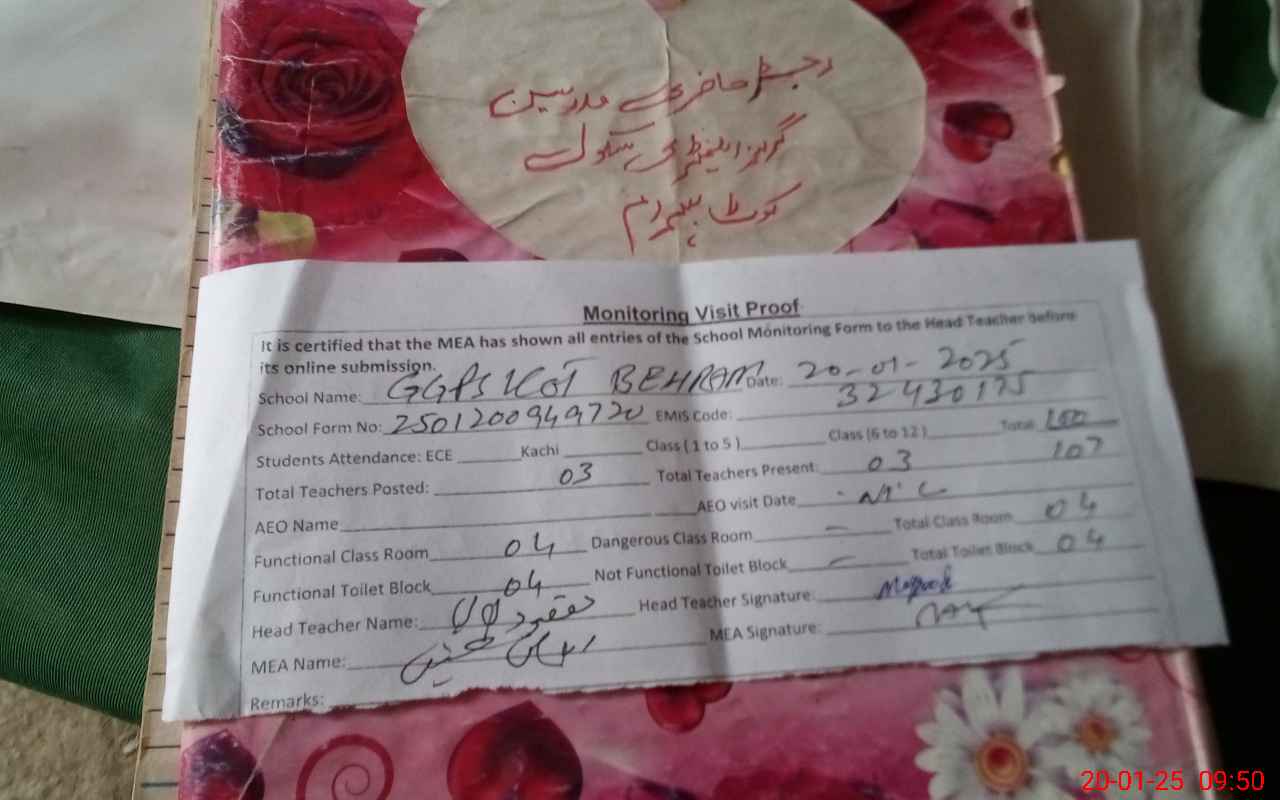 رجسٹر حاضری مدرسین
گرلز ایلیمنٹری سکول
کوٹ بہرام
Monitoring Visit Proof
It is certified that the MEA has shown all entries of the School Monitoring Form to the Head Teacher before
its online submission.
School Name: GGPS KOT BEHRAM Date: 20-01-2025
School Form No: 2501200949720 EMIS Code: 32430175
Students Attendance: ECE Kachi Class ( 1 to 5 ) Class (6 to 12 ) Total 100
107
Total Teachers Posted: 03 Total Teachers Present: 03
AEO Name AEO visit Date
Functional Class Room 04 Dangerous Class Room – Total Class Room 04
Functional Toilet Block 04 Not Functional Toilet Block – Total Toilet Block 04
Head Teacher Name: Head Teacher Signature:
MEA Name: MEA Signature:
Remarks:
20-01-25 09:50